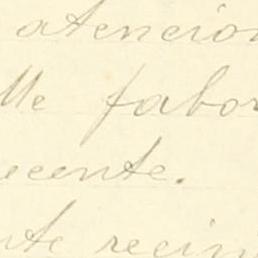 atencion
lle fabor
ecente.
nte recin